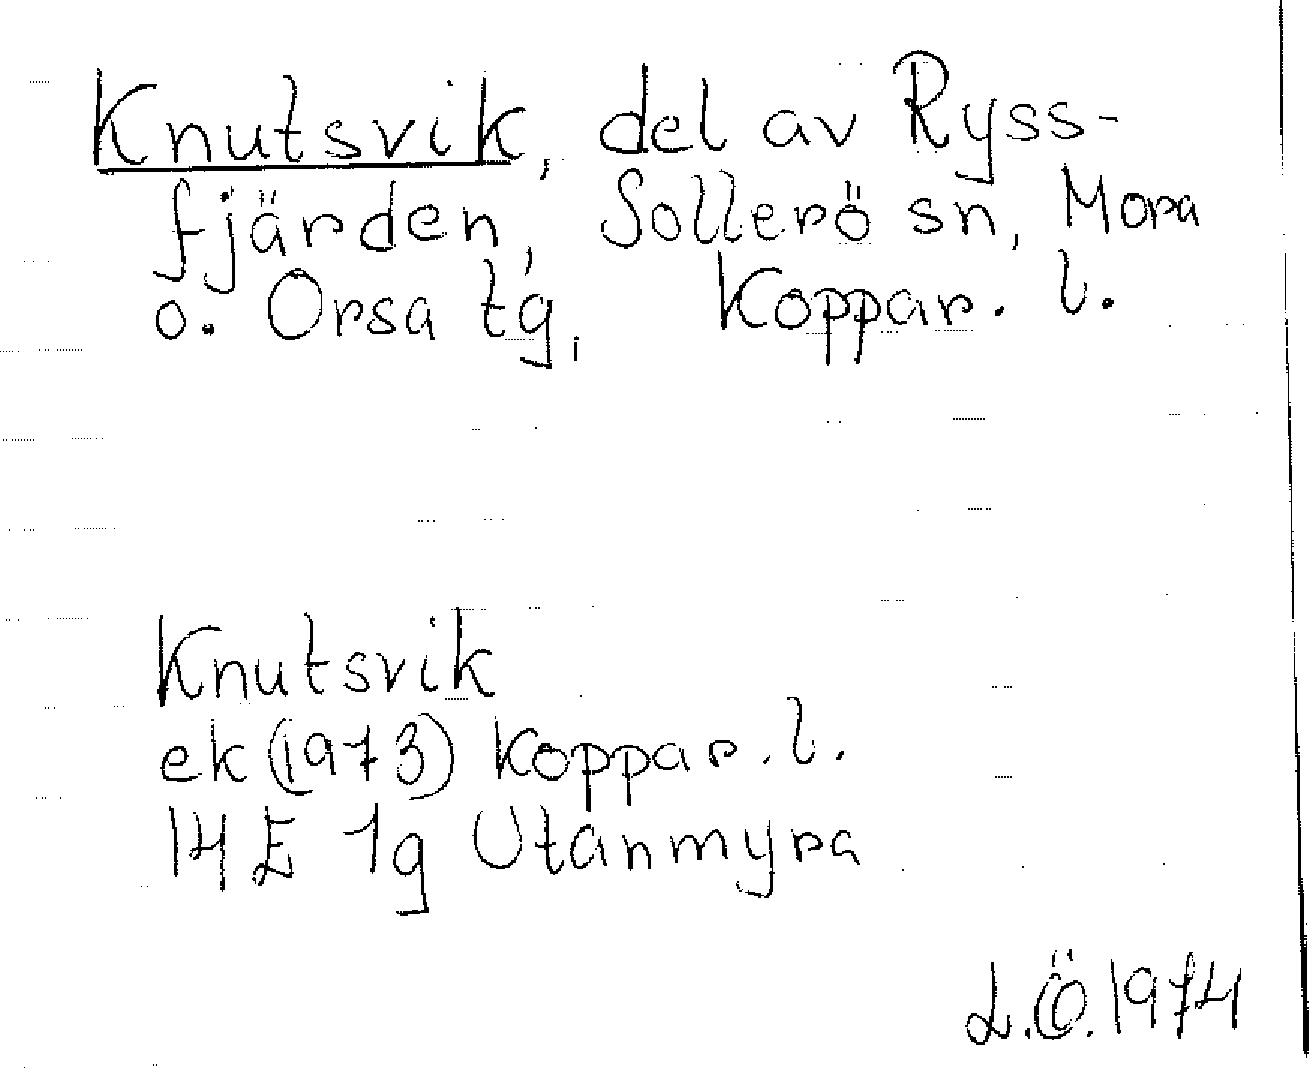 Knutsvik, del av Ryss-
fjärden, Sollerö sn, Mora
o. Orsa tg, Koppar. l.
Knutsvik
ek (1973) Koppar. l.
14 E 1g Utanmyra
L.Ö. 1974